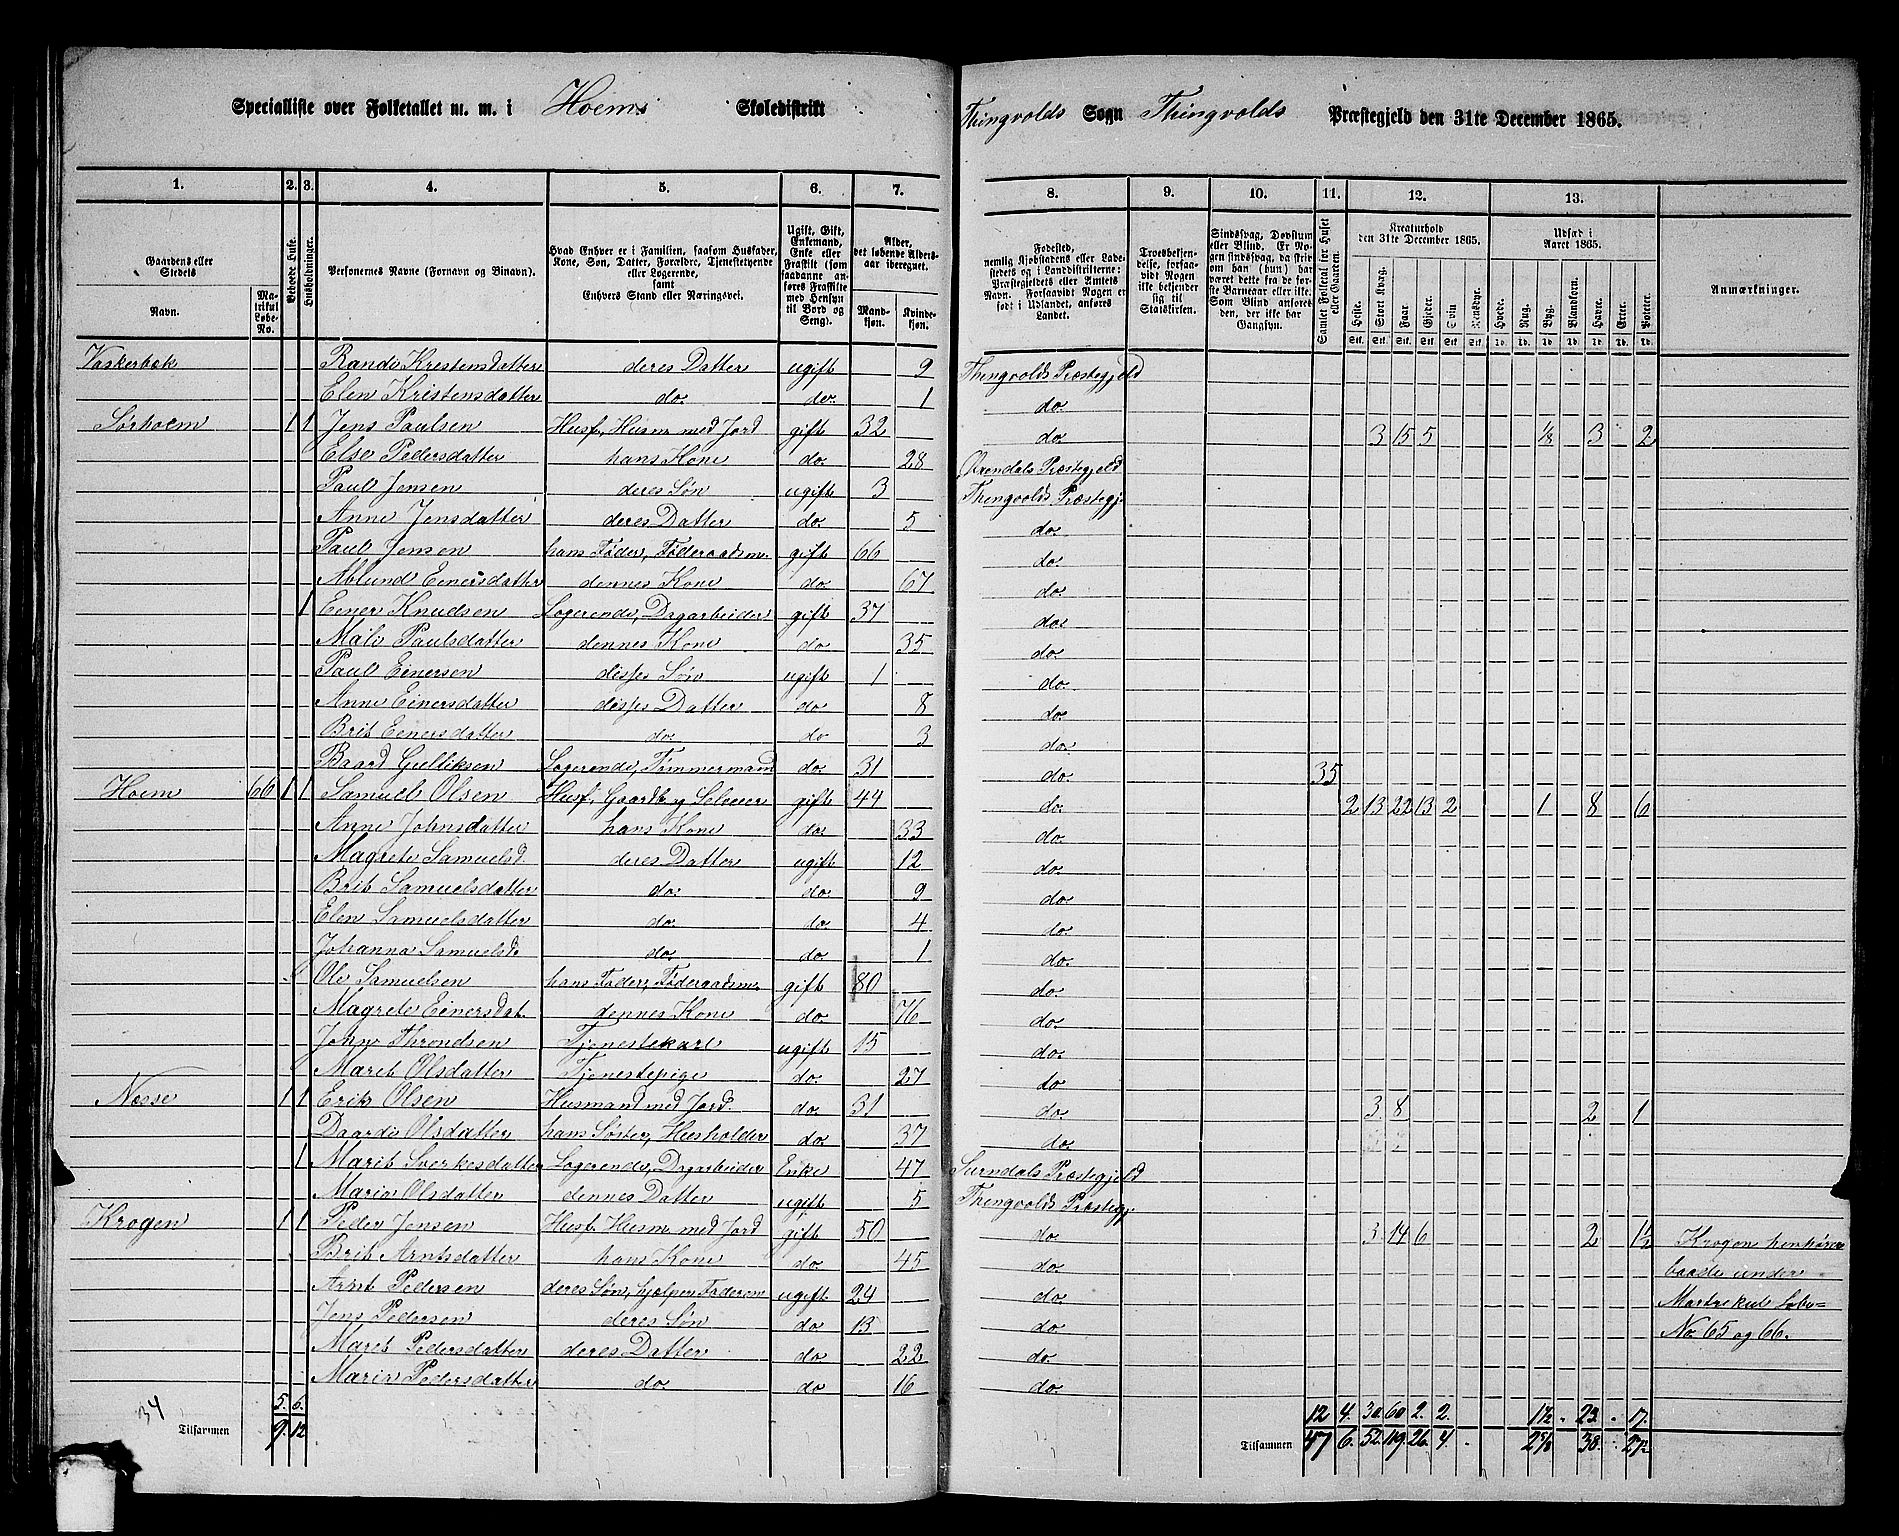 Specialliste over Folketallet m. m. i Hoems Skoledistrikt Thingvolds Sogn Thingvolds Præstegjeld den 31te December 1865.
1. 2. 3. 4. 5. 6. 7. 8. 9. 10. 11. 12. 13.
Gaardens eller Stedets Navn. Matrikul Løbe-No. Beboede Huse. Husholdninger. Personernes Navne (Fornavn og Binavn). Hvad Enhver er i Familien, saasom Husfader, Kone, Søn, Datter, Forældre, Tjenestetyende eller Logerende, samt Enhvers Stand eller Næringsvei. Ugift, Gift, Enkemand, Enke eller Fraskilt (som saadanne anføres Fraskilte med Hensyn til Bord og Seng). Alder, det løbende Alders-aar iberegnet. Mandkjøn. Kvindekjøn.
Fødested, nemlig Kjøbstadens eller Ladestedets og i Landdistrikterne: Præstegjeldets eller Amtets Navn. Forsaavidt Nogen er født i Udlandet, anføres Landet. Troesbekjendelse, forsaavidt Nogen ikke bekjender sig til Statskirken. Sindssvag, Døvstum eller Blind. Er Nogen sindssvag, da skrives om han (hun) har været dette fra de første Barneaar eller ikke. Som Blind anføres den, der ikke har Gangsyn. Samlet Folketal for Huset eller Gaarden. Kreaturhold den 31te December 1865. Heste. Stort Kvæg. Faar. Gjeder. Svin. Rensdyr. Udsæd i Aaret 1865. Hvede. Rug. Byg. Blandkorn. Havre. Erter. Poteter. Anmærkninger.
Vaskerbæk Randi Kristensdatter deres Datter ugift 9 Thingvolds Præstegjeld
Elen Kristensdatter do. do. 1 do.
Sørhoem 1 1 Jens Paulsen Husf, Husm med Jord gift 32 do. 3 15 5 1/8 3 2
Else Pedersdatter hans Kone do. 28 Øxendals Præstegjeld
Paul Jensen deres Søn ugift 3 Thingvolds Præstegj.
Anne Jensdatter deres Datter do. 5 do.
Paul Jensen hans Fader, Føderaadsm. gift 66 do.
Ablund Einersdatter dennes Kone do. 67 do.
1 Einer Knudsen Logerende, Dagarbeider gift 37 do.
Mali Paulsdatter dennes Kone do 35 do.
Paul Einersen disses Søn ugift 1 do.
Anne Einersdatter disses Datter do 8 do.
Brit Einersdatter do. do 3 do.
Baard Gulliksen Logerende, Tømmermand do. 31 do. 35
Hoem 66 1 1 Samuel Olsen Husf, Gaardb og Selveier gift 44 do. 2 13 22 13 2 1 8 6
Anne Johnsdatter hans Kone do. 33 do.
Magrete Samuelsd. deres Datter ugift 12 do.
Brit Samuelsdatter do. do. 9 do.
Elen Samuelsdatter do. do. 4 do.
Johanna Samuelsd. do. do. 1 do.
Ole Samuelsen hans Fader, Føderaadsm. gift 80 do.
Magrete Einersdat. dennes Kone do. 76 do.
John Throndsen Tjenestekarl ugift 15 do.
Marit Olsdatter Tjenestepige do. 27 do
Næsse 1 1 Erik Olsen Husmand med Jord. do. 31 do. 3 8 2 1
Daardi Olsdatter hans Søster, Husholder do. 37 do.
1 Marit Sverkesdatter Logerende, Dagarbeider Enke 47 Surndals Præstegjeld
Maria Olsdatter dennes Datter ugift 5 Thingvolds Præstegj.
Krogen 1 1 Peder Jensen Husf. Husm med Jord gift 50 do. 3 14 6 2 1½ Krogen henhører
Brit Arntsdatter hans Kone do. 45 do. baade under
Arnt Pedersen deres Søn, hjelper Faderen ugift 24 do. Martrekul Løbe-
Jens Pedersen deres Søn do 13 do. No 65 og 66.
Marit Pedersdatter deres Datter do 22 do.
Maria Pedersdatter do. do 16 do.
34 5. 6. 12 4. 30 60 2. 2. 1½ 23. 17.
Tilsammen 9. 12 Tilsammen 47 6. 52. 119 26. 4. 2⅝ 38. 27½